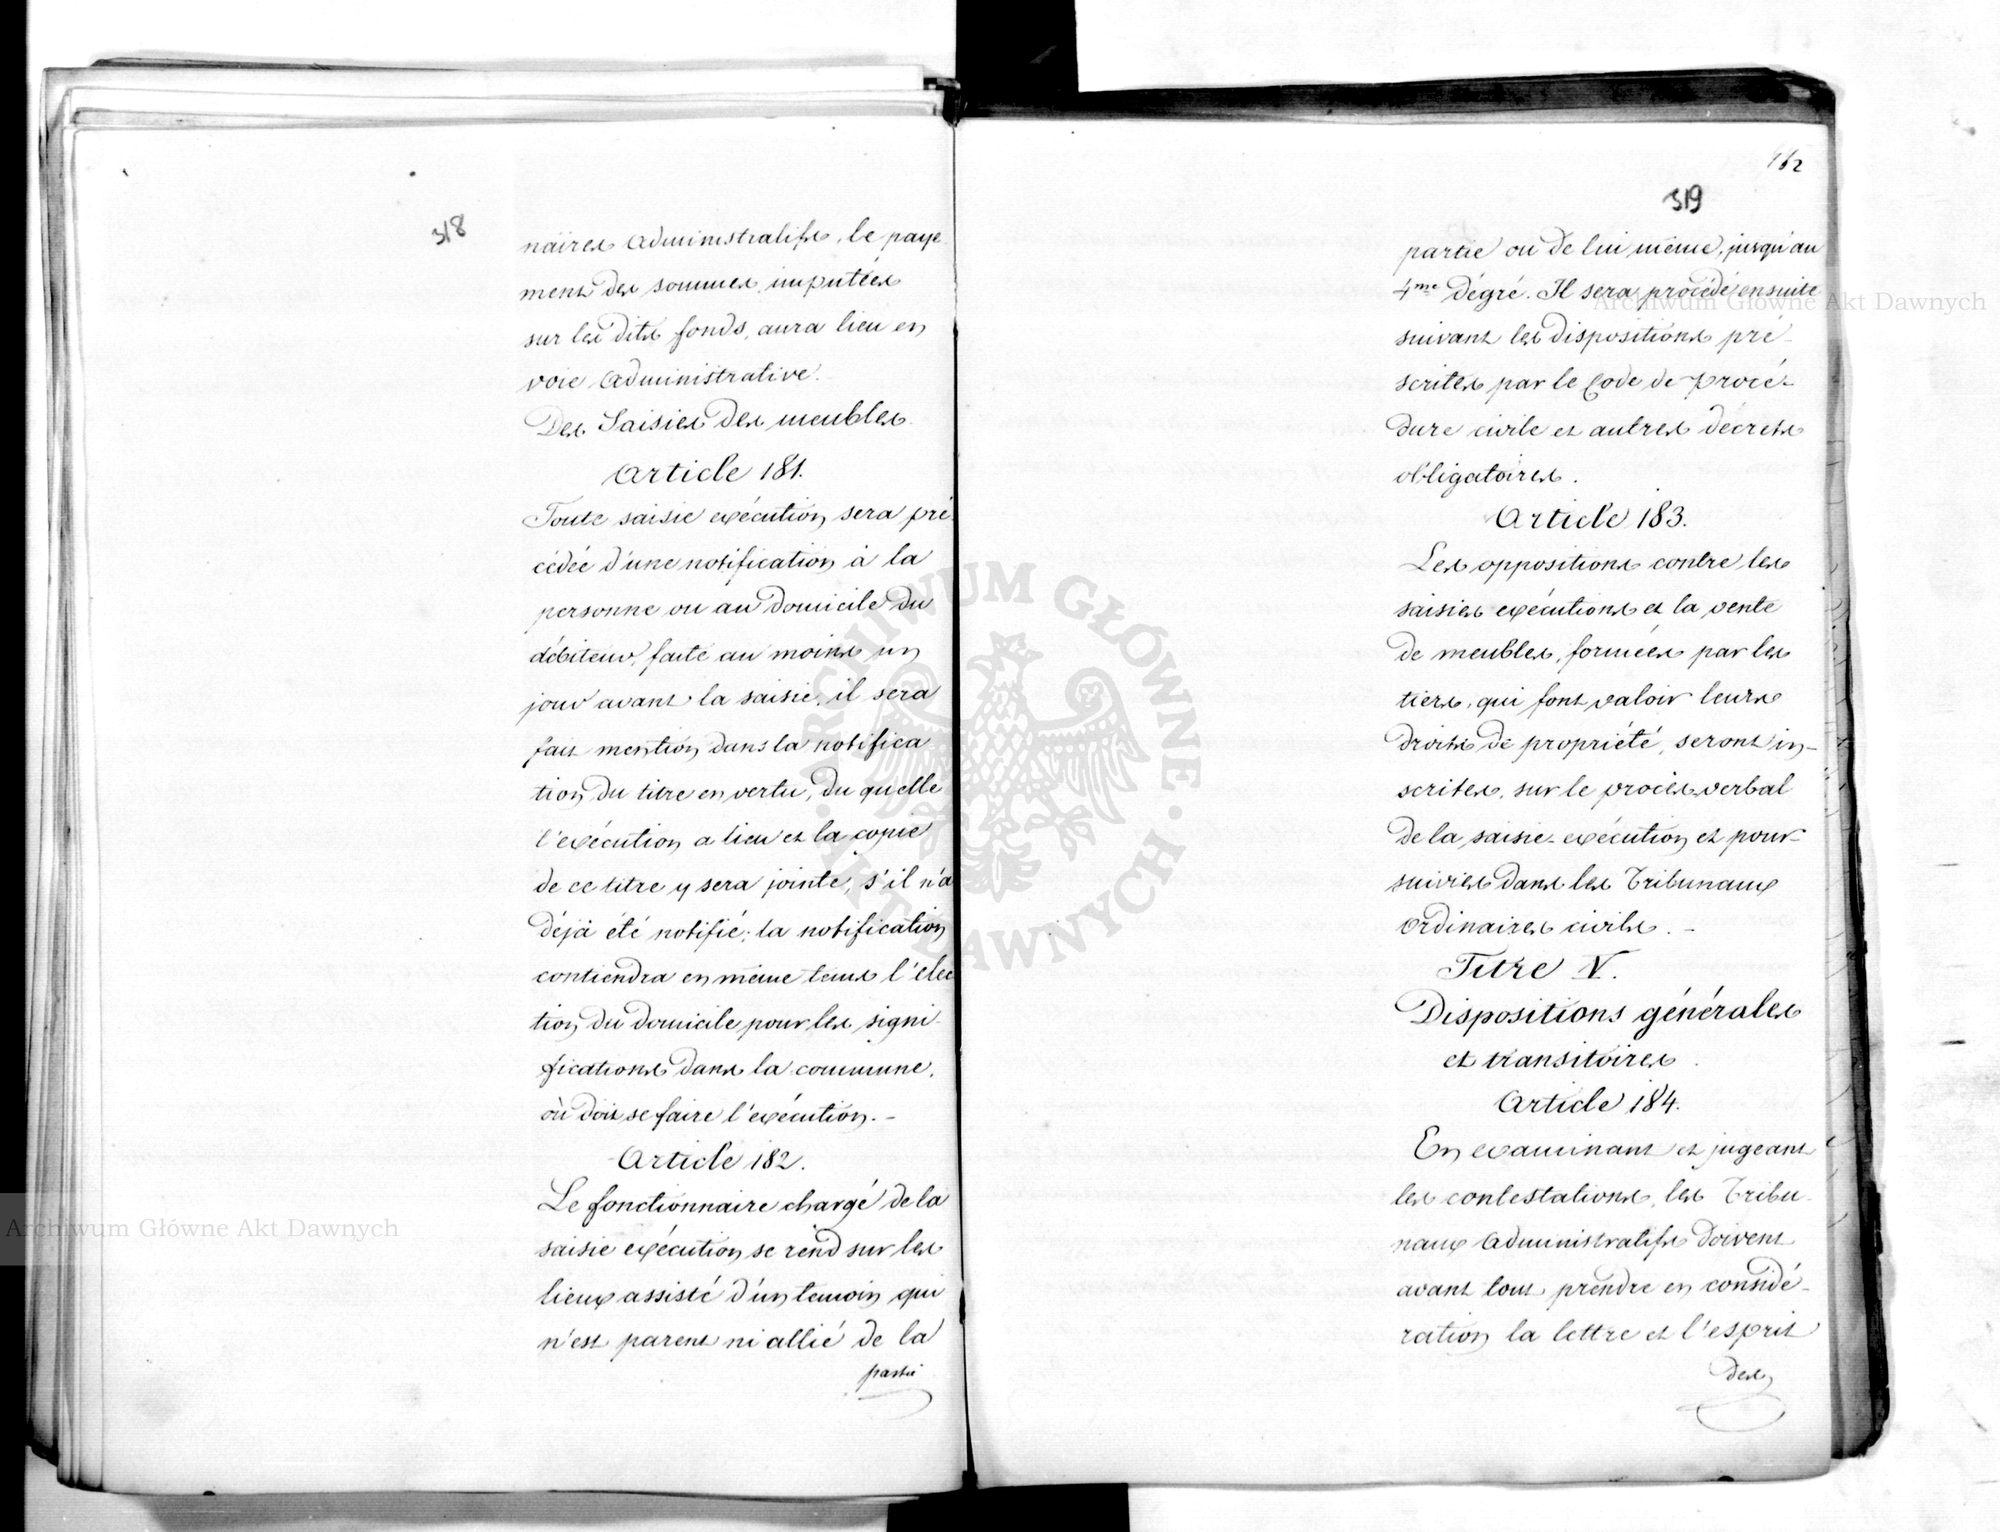 318
naires Administratifs, le paye-
ment des sommes imputées
sur les dits fonds, aura lieu en
voie Administrative.
Des Saisies des meubles.
Article 181.
Toute saisie exécution sera pré
cédée d'une notification à la
personne ou au Domicile du
débiteur, faite au moins un
jour avant la saisie, il sera
fait mention dans la notifica
tion du titre en vertu, du quelle
l'exécution a lieu et la copie
de ce titre y sera jointe, s'il n'a
déjà été notifié; la notification
contiendra en même tems l'élec
tion du domicile pour les signi-
fications dans la commune,
où doit se faire l'exécution. -
Article 182.
Le fonctionnaire chargé de la
saisie exécution se rend sur les
lieux assisté d'un temoin qui
n'est parent ni allié de la
partie
162
319
partie ou de lui même, jusqu'au
4me dégré. Il sera procédé ensuite
suivant les dispositions pré-
scrites par le Code de procé-
dure civile et autres décrets
obligatoires.
Article 183.
Les oppositions contre les
saisies exécutions et la vente
de meubles, formées par les
tiers, qui font valoir leurs
droits de propriété, seront in-
scrites, sur le procès verbal
de la saisie-exécution et pour-
suivies dans les Tribunaux
Ordinaires civils. -
Titre V.
Dispositions générales
et transitoires.
Article 184.
En examinant et jugeant
les contestations, les Tribu-
naux Administratifs doivent
avant tout prendre en considé-
ration la lettre et l'esprit
des
Archiwum Główne Akt Dawnych
Archiwum Główne Akt Dawnych
ARCHIWUM GŁÓWNE · AKT DAWNYCH ·